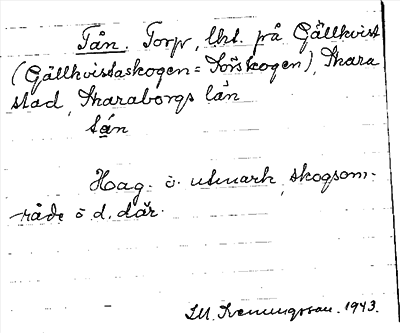 Tån. Torp, lht. på Gällkvist
(Gällkvistaskogen = Sörskogen), Skara
stad, Skaraborgs län
tån
Hag- o. utmark, skogsom-
råde ö. d. där.
1943.